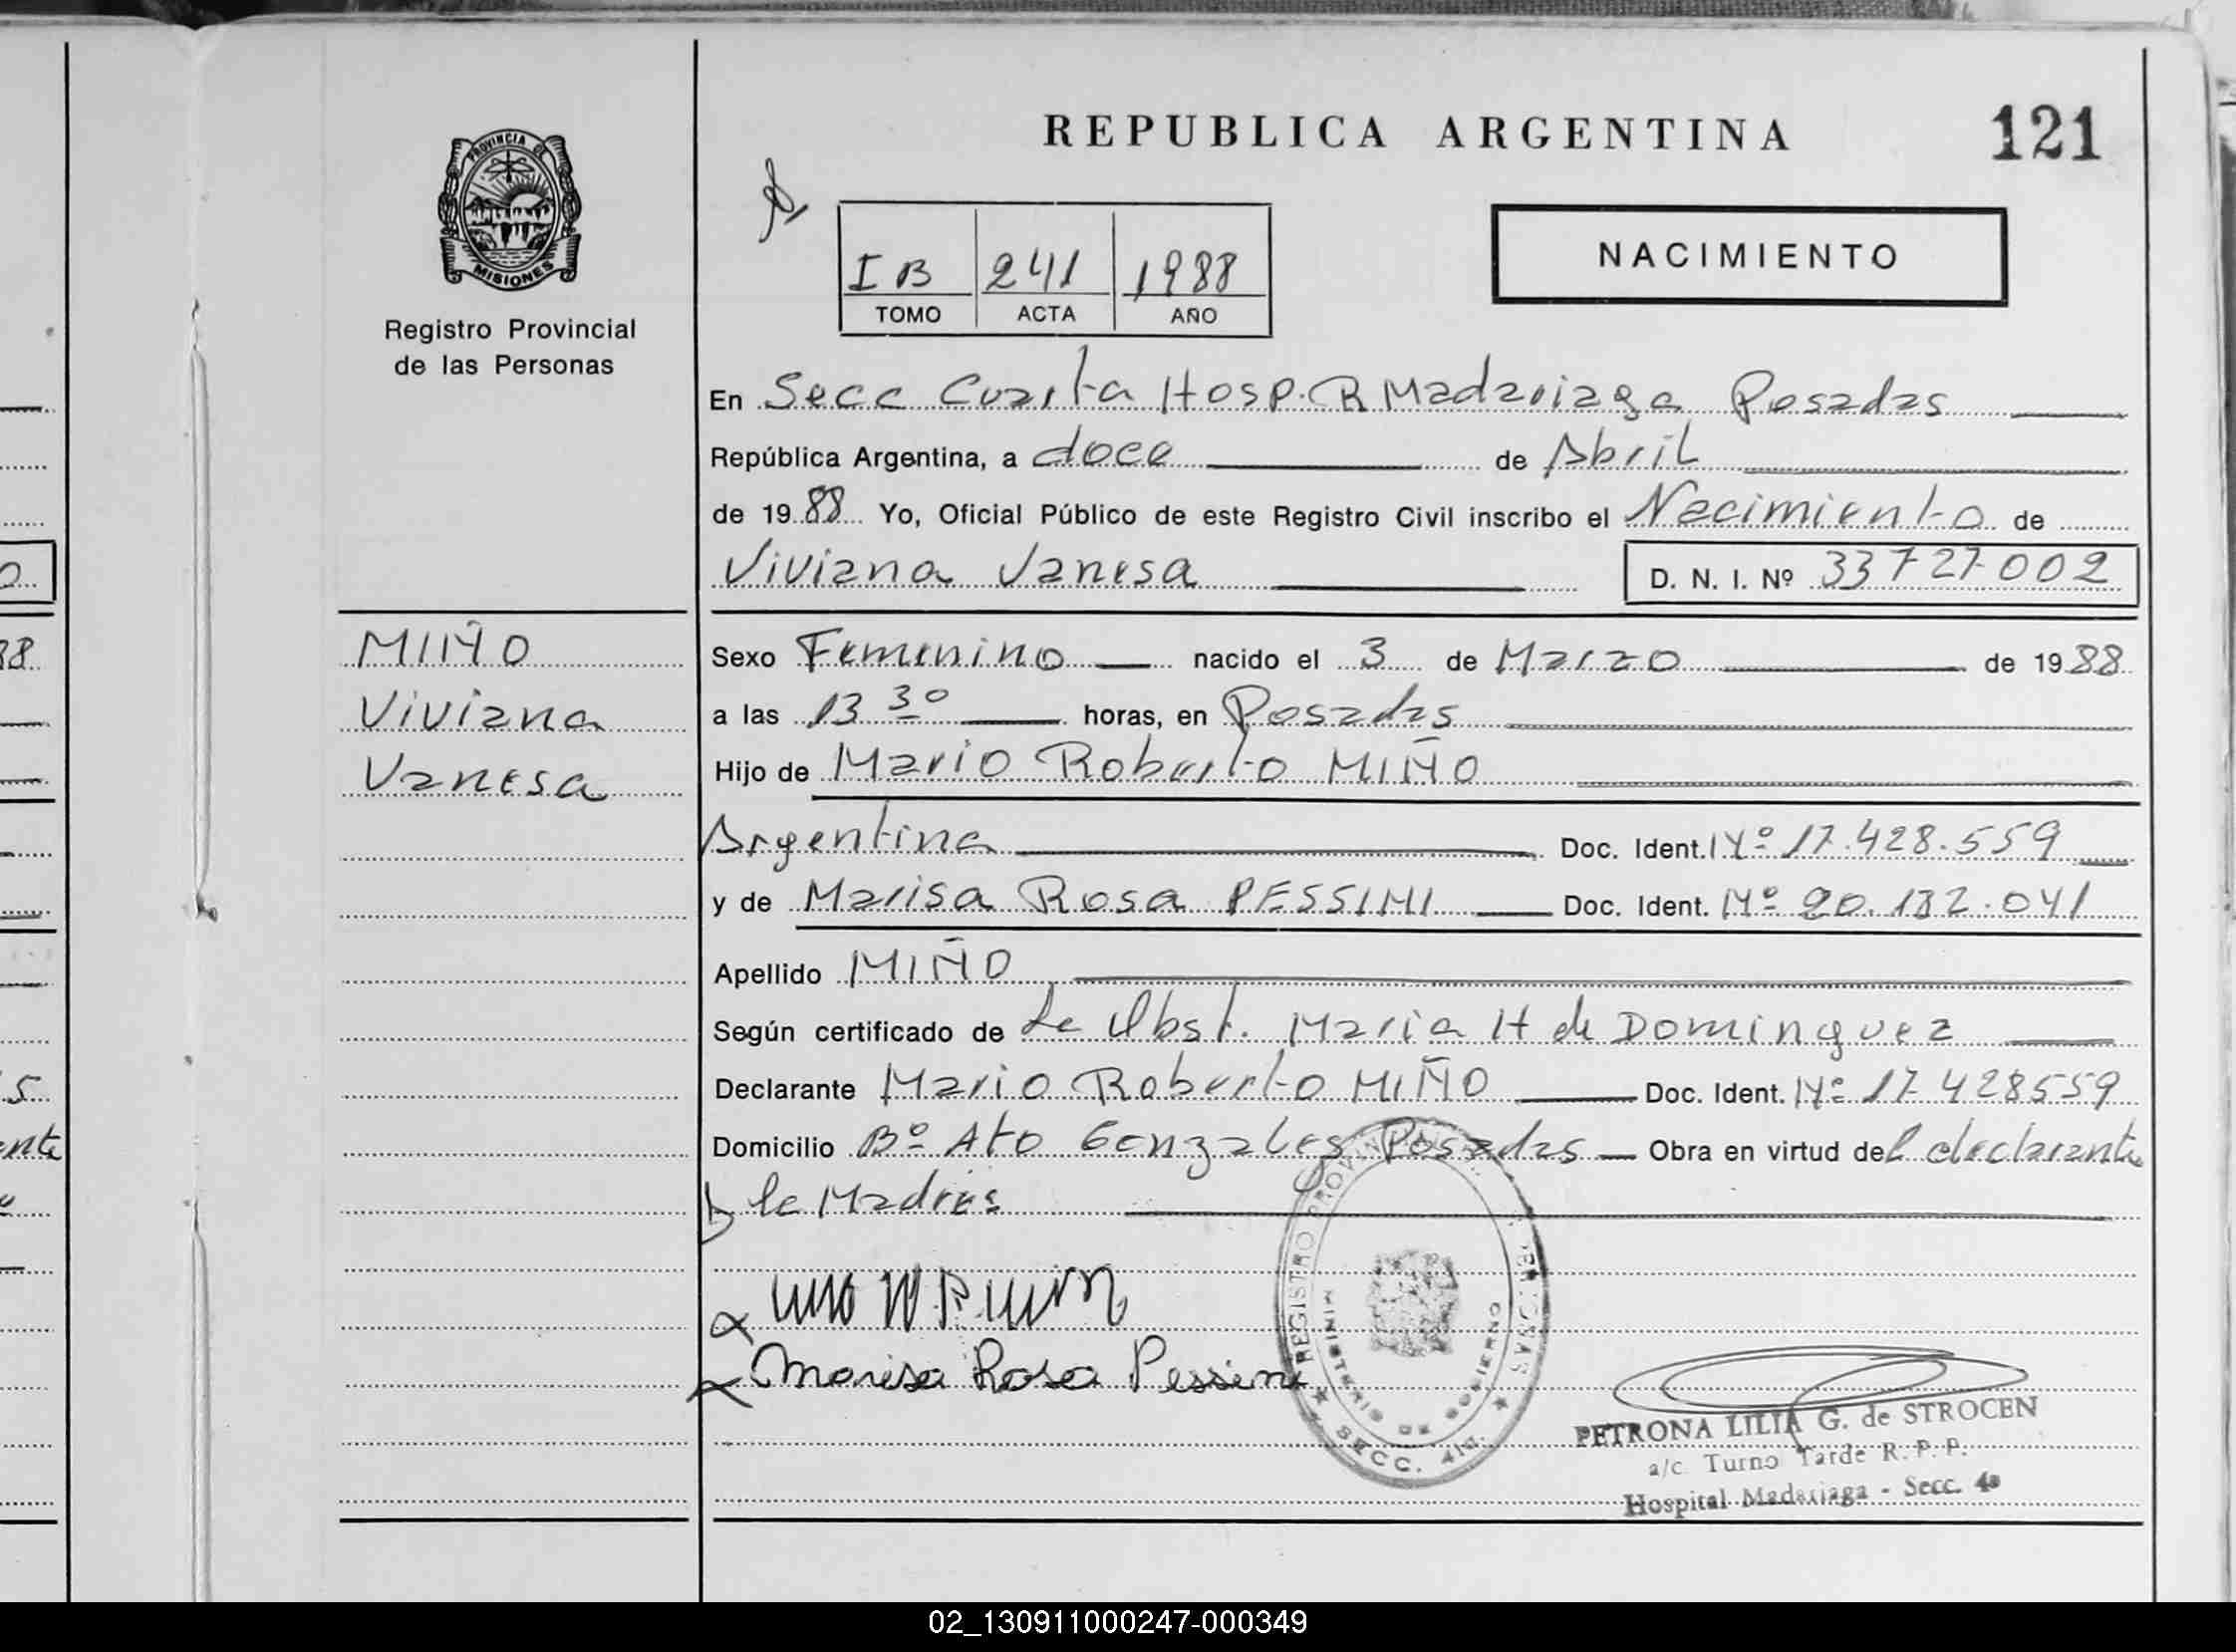 REPUBLICA ARGENTINA
121
PROVINCIA DE
MISIONES
Registro Provincial
de las Personas
I B 241 1988
TOMO ACTA AÑO
NACIMIENTO
En Secc Cuarta Hosp. R Madariaga Posadas
República Argentina, a doce de Abril
de 1988 Yo, Oficial Público de este Registro Civil inscribo el Nacimiento de
Viviana Vanesa D. N. I. Nº 33727002
MIÑO
Viviana
Vanesa
Sexo Femenino nacido el 3 de Marzo de 1988
a las 13 30 horas, en Posadas
Hijo de Mario Roberto MIÑO
Argentina Doc. Ident. Nº 17.428.559
y de Marisa Rosa PESSINI Doc. Ident. Nº 20.132.041
Apellido MIÑO
Según certificado de La Obst. Maria H de Dominguez
Declarante Mario Roberto MIÑO Doc. Ident. Nº 17 428559
Domicilio Bº A4to Gonzales Posadas Obra en virtud del declarante
y la Madres
Marisa Rosa Pessini
REGISTRO PROVINCIAL PERSONAS
MINISTERIO DE GOBIERNO
SECC. 4ta.
PETRONA LILIA G. de STROCEN
a/c Turno Tarde R. P. P.
Hospital Madariaga - Secc. 4a
02_130911000247-000349